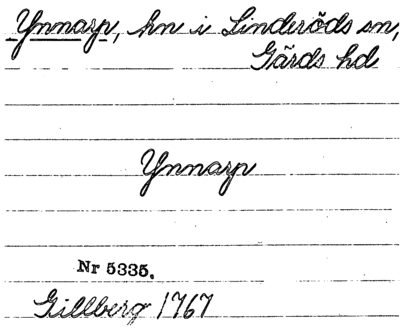 Ynnarp, hn i Linderöds sn,
Gärds hd
Ynnarp
Nr 5335.
Gillberg 1767